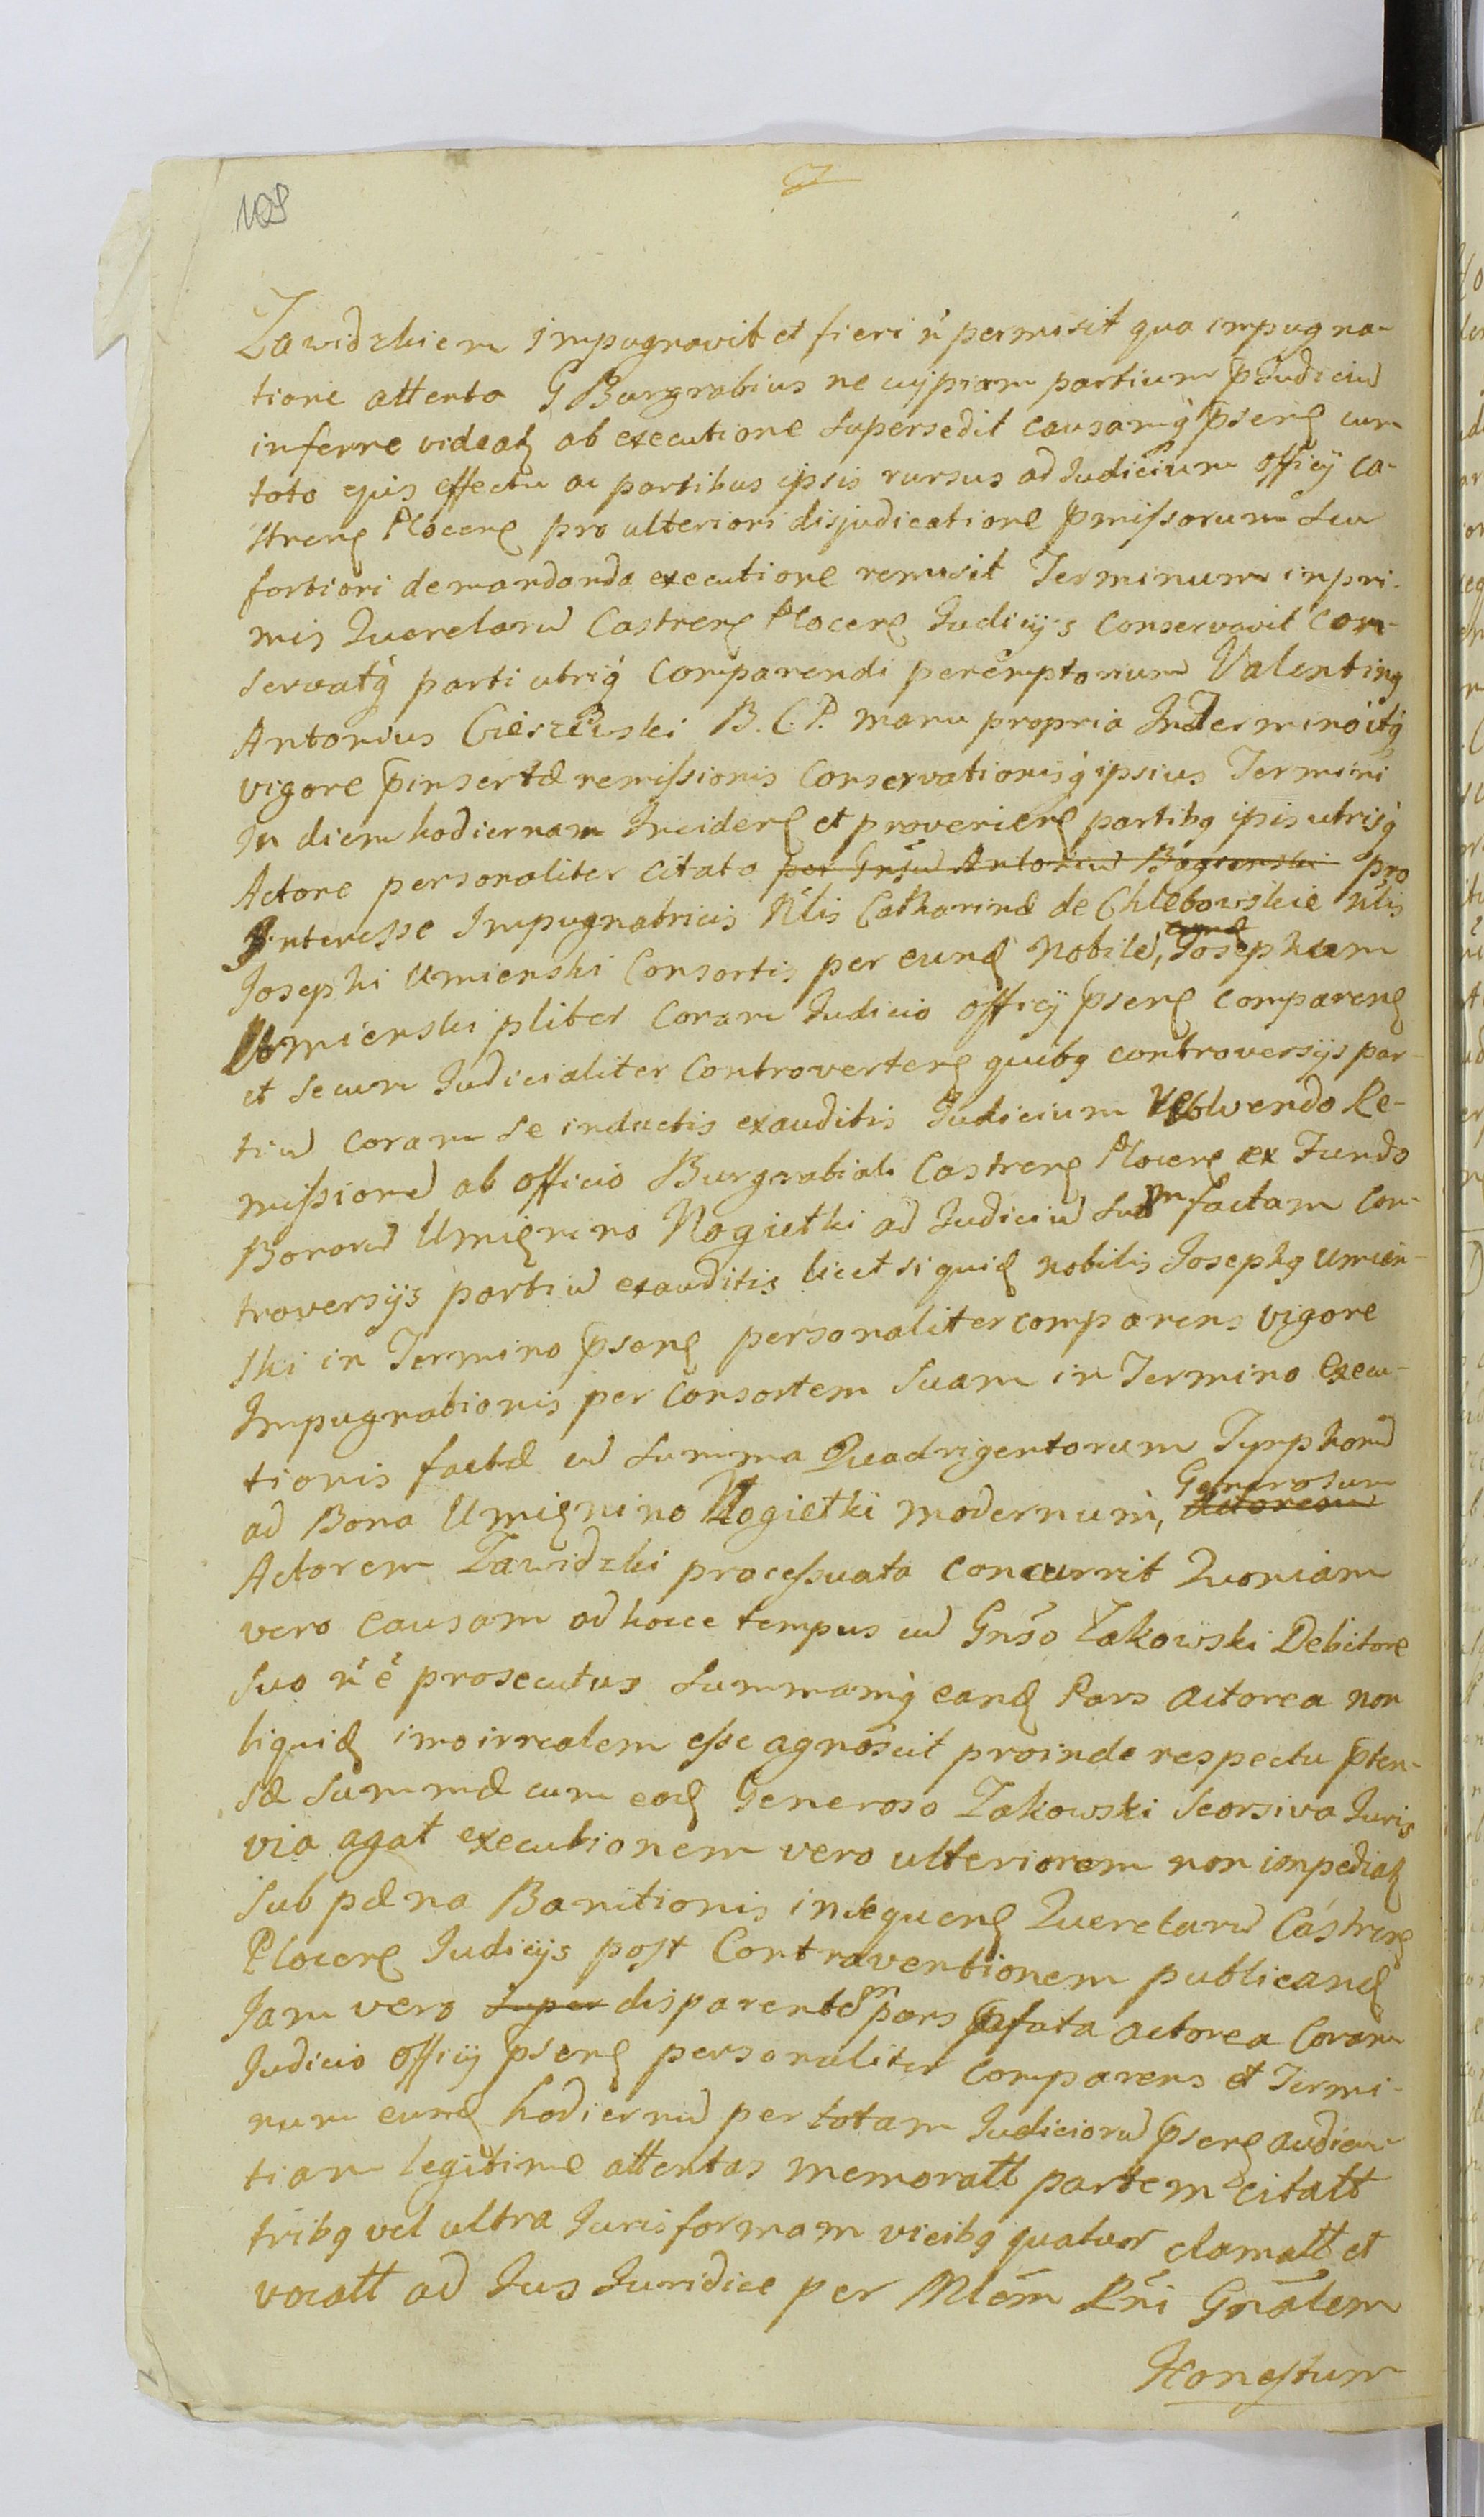 108
Zawidzkiem impugnavit et fieri ñ permisit qua impugna-
tione attenta G Burgrabius ne cujpiam partium pjudiciu
inferre videatq ab executione supersedit causamq́ psenς cum
toto ejus effectu ac partibus ipsis rursus ad Judicium officij Ca-
strenς Plocenς pro ulteriori disjudicatione pmissorum seu
fortiori demandanda executione remisit Terminum inpri-
mis Querelarū Castrenς Plocenς Judicijs conservavit con-
servatq́ parti utriq́ comparendi peremptorium Valentinq
Antonius Cieszewski B. C. P. manu propria In Termino itq́
vigore pinsertæ remissionis conservationisq́ ipsius Termini
In diem hodiernam Incidenς et provenienς partibq ipis utrisq́
Actore personaliter citato per Gnsū Antoniū Bagienski pro
Interesse Impugnatricis Nlis Catharinæ de Chlebowskie Nlis
Josephi Umienski Consortis per eundς Nobilē, Josephum
Umienski pliter coram Judicio officij psenς comparenς
et secum Judicialiter controvertenς quibq controversijs par-
tiū coram se inductis exauditis Judicium resolvendo Re-
missionē ab officio Burgrabiali Castrenς Plocenς ex Fundo
Bonorū Umięnino Nogietki ad Judiciū suum factam con-
troversijs partiū exauditis licet siquidς nobilis Josephq Umien-
ski in Termino psenς personaliter comparens vigore
Impugnationis per consortem suam in Termino Execu-
tionis factæ cū summa Quadrigentorum Tymphorū
Generosum
ad Bona Umięnino Nogietki modernum, Actoream
Actorem Zawidzki processuata concurrit Quoniam
vero causam ad hocce tempus cū Gnso Żakowski Debitore
suo ñ ē prosecutus summamq́ eandς Pars actorea non
liquidς imo irrealem esse agnoscit proinde respectu pten-
sæ summæ cum eodς Generoso Zakowski seorsiva Juris
via agat executionem vero ulteriorem non impediatq
sub pæna Banitionis in sequenς Querelarū Castrenς
Plocenς Judicijs post Contraventionem publicandς
Jam vero super disparentem pars pfata actorea Coram
Judicio officij psenς personaliter comparens et Termi-
num eundς hodiernū per totam Judiciorū psenς audien-
tiam legitime attentas memoratt partem citatt
tribq vel ultra Juris formam vicibq quatuor clamatt et
vocatt ad Jus Juridice per Mlem Rñi Gnalem
Honestum